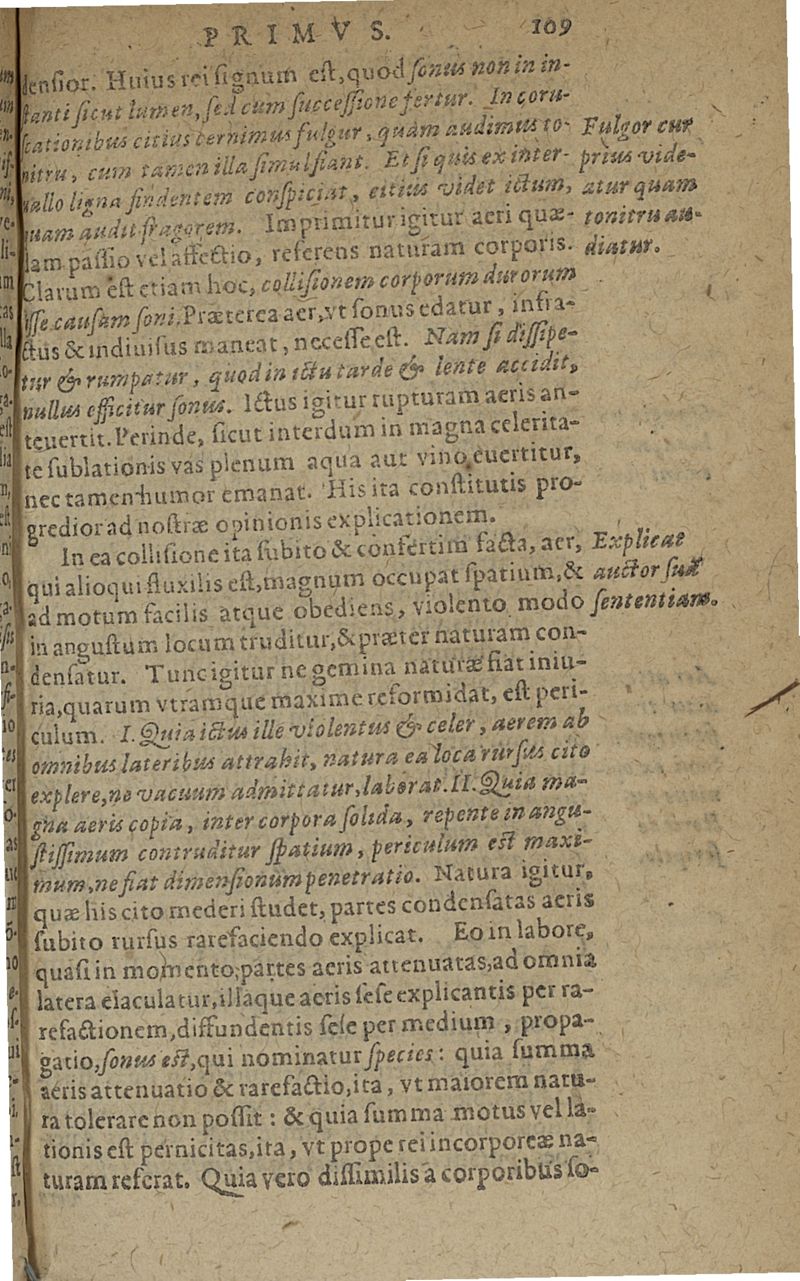 PRIMVS. 109
densior. Huius rei signum est, quod sonus non in in-
stanti sicut lumen, sed cum successione fertur. In coru-
scationibus citius cernimus fulgur, quam audimus to-
nitru, cum tamen illa simul fiant. Et si quis ex inter-
uallo ligna findentem conspiciat, citius videt ictum,
quam audit fragorem. Imprimitur igitur aeri quæ-
dam passio vel affectio, referens naturam corporis.
Clarum est etiam hoc, collisionem corporum durorum
esse causam soni. Præterea aer, vt sonus edatur, infra-
ctus & indiuisus maneat, necesse est. Nam si dissipe-
tur & rumpatur, quod in ictu tarde & lente accidit,
nullus efficitur sonus. Ictus igitur rupturam aeris an-
teuertit. Perinde, sicut interdum in magna celerita-
te sublationis vas plenum aqua aut vino euertitur,
nec tamen humor emanat. His ita constitutis pro-
gredior ad nostræ opinionis explicationem.
In ea collisione ita subito & confertim facta, aer,
qui alioqui fluxilis est, magnum occupat spatium, &
ad motum facilis atque obediens, violento modo
in angustum locum truditur, & præter naturam con-
densatur. Tunc igitur ne gemina naturæ fiat iniu-
ria, quarum vtramque maxime reformidat, est peri-
culum. I. Quia ictus ille violentus & celer, aerem ab
omnibus lateribus attrahit, natura ea loca rursus cito
explere, ne vacuum admittatur, laborat. II. Quia ma-
gna aeris copia, inter corpora solida, repente in angu-
stissimum contruditur spatium, periculum est maxi-
mum, ne fiat dimensionum penetratio. Natura igitur,
quæ his cito mederi studet, partes condensatas aeris
subito rursus rarefaciendo explicat. Eo in labore,
quasi in momento, partes aeris attenuatas, ad omnia
latera eiaculatur, illaque aeris sese explicantis per ra-
refactionem, diffundentis sese per medium, propa-
gatio, sonus est, qui nominatur species: quia summa
aeris attenuatio & rarefactio, ita, vt maiorem natu-
ra tolerare non possit: & quia summa motus vel la-
tionis est pernicitas, ita, vt prope rei incorporeæ na-
turam referat. Quia vero dissimilis a corporibus so-
Fulgor cur
prius vide-
atur quam
tonitru au-
diatur.
Explicat
auctor suæ
sententiam.